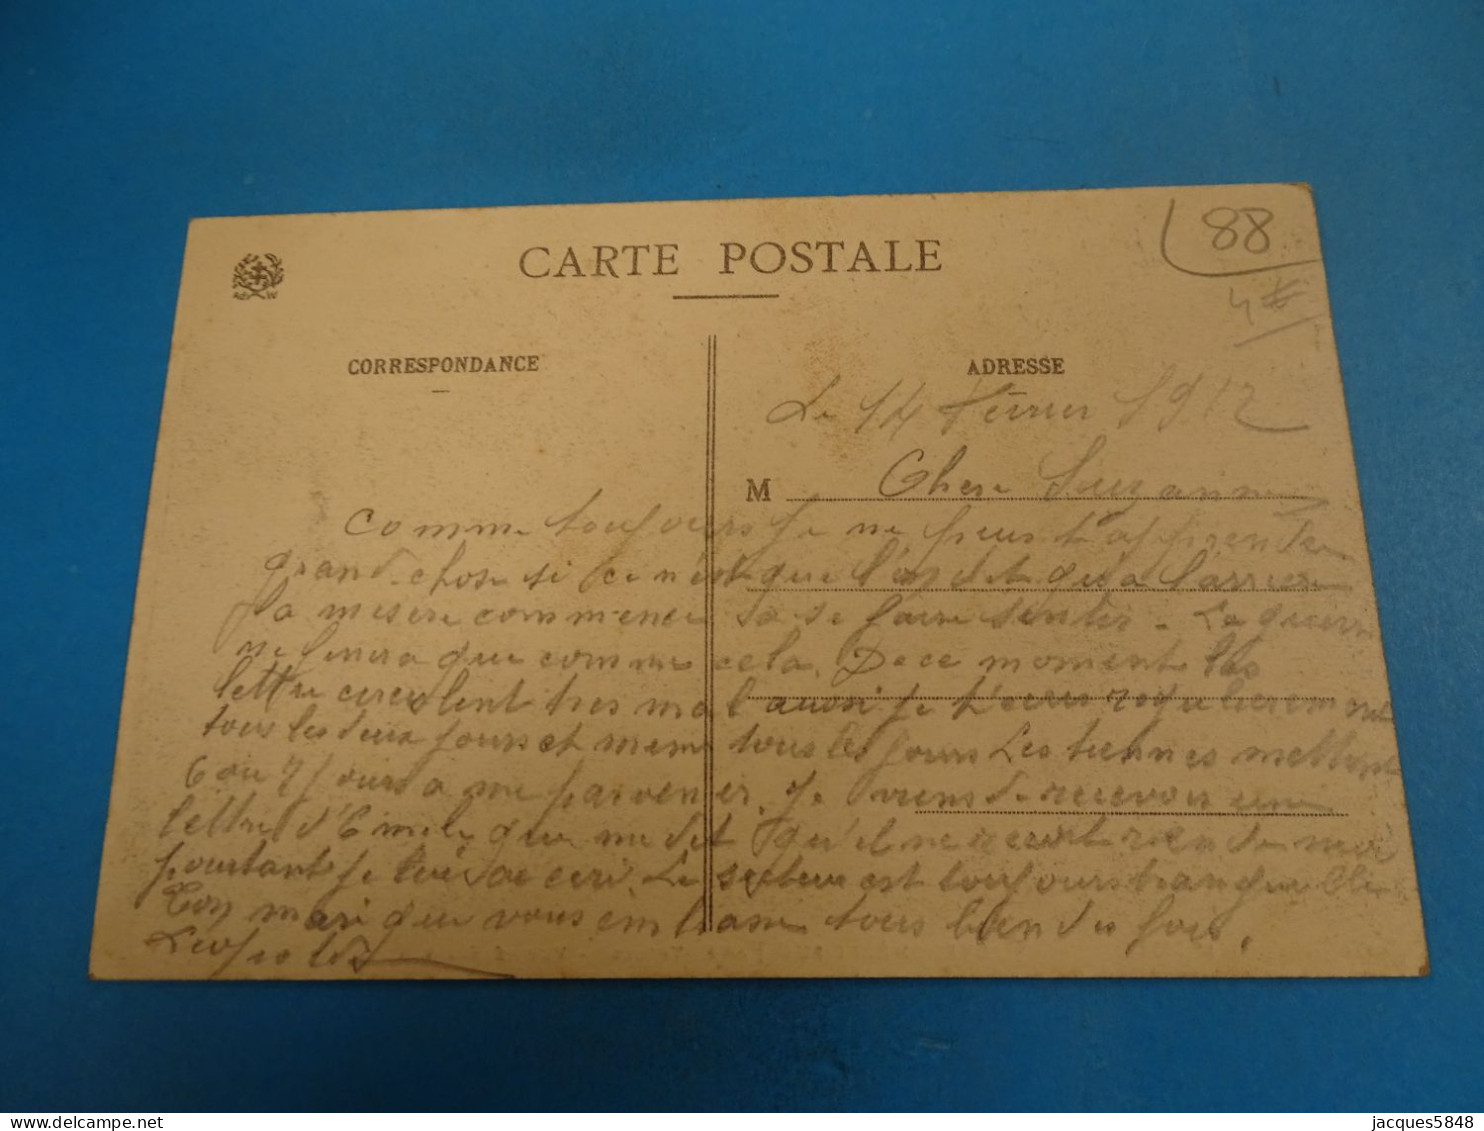 88
4€
CARTE POSTALE
CORRESPONDANCE
ADRESSE
Le 14 Février 1917
M Chere Suzanne
Comme toujours je ne peux t'apprendre
grand chose si ce n'est que l'on dit qu'a l'arriere
la misere commence a se faire sentir. La guerre
ne finira que comme cela. De ce moment les
lettre circulent tres mal aussi je t'ecris regulierement
tous les deux jours et meme tous les jours Les tiennes mettent
6 ou 7 jours a me parvenir. Je viens de recevoir une
lettre d'Emile que me dit qu'il ne recoit rien de moi
pourtant je lui ai ecri. Le secteur est toujours tranquille
Ton mari que vous embrasse tous bien des fois.
Leopold
jacques5848